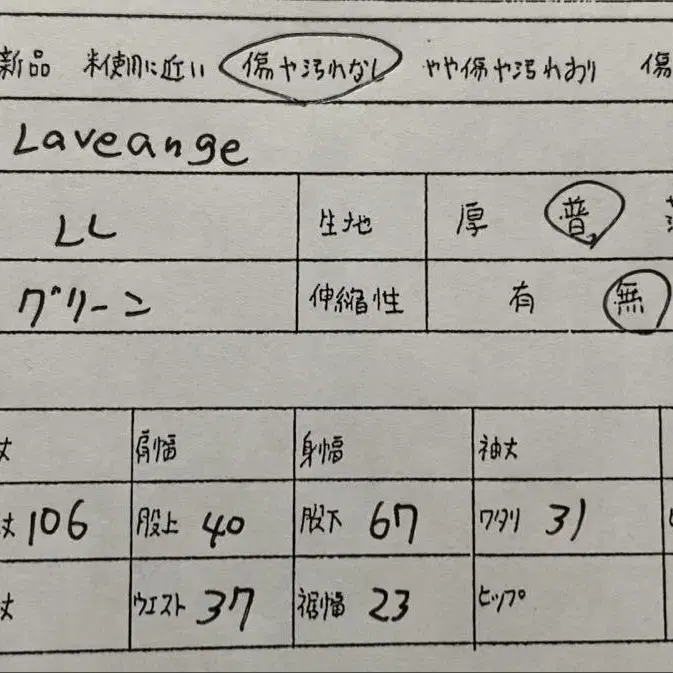 新品 未使用に近い 傷や汚れなし やや傷や汚れあり 傷
Laveange
LL 生地 厚 普
グリーン 伸縮性 有 無
丈 肩幅 身幅 袖丈
丈 106 股上 40 股下 67 ワタリ 31
丈 ウエスト 37 裾幅 23 ヒップ